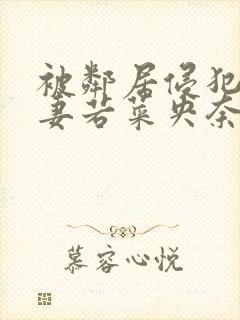 被邻居侵犯
妻若菜央奈
慕容心悦